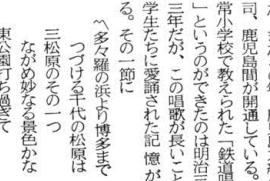 司、鹿児島間が開通している。
常小学校で教えられた「鉄道唱
」というのができたのは明治三
三年だが、この唱歌が長いこと
学生たちに愛誦された記憶が
る。その一節に
〽多々羅の浜より博多まで
つづける千代の松原は
三松原のその一つ
ながめ妙なる景色かな
東公園打ち過ぎて